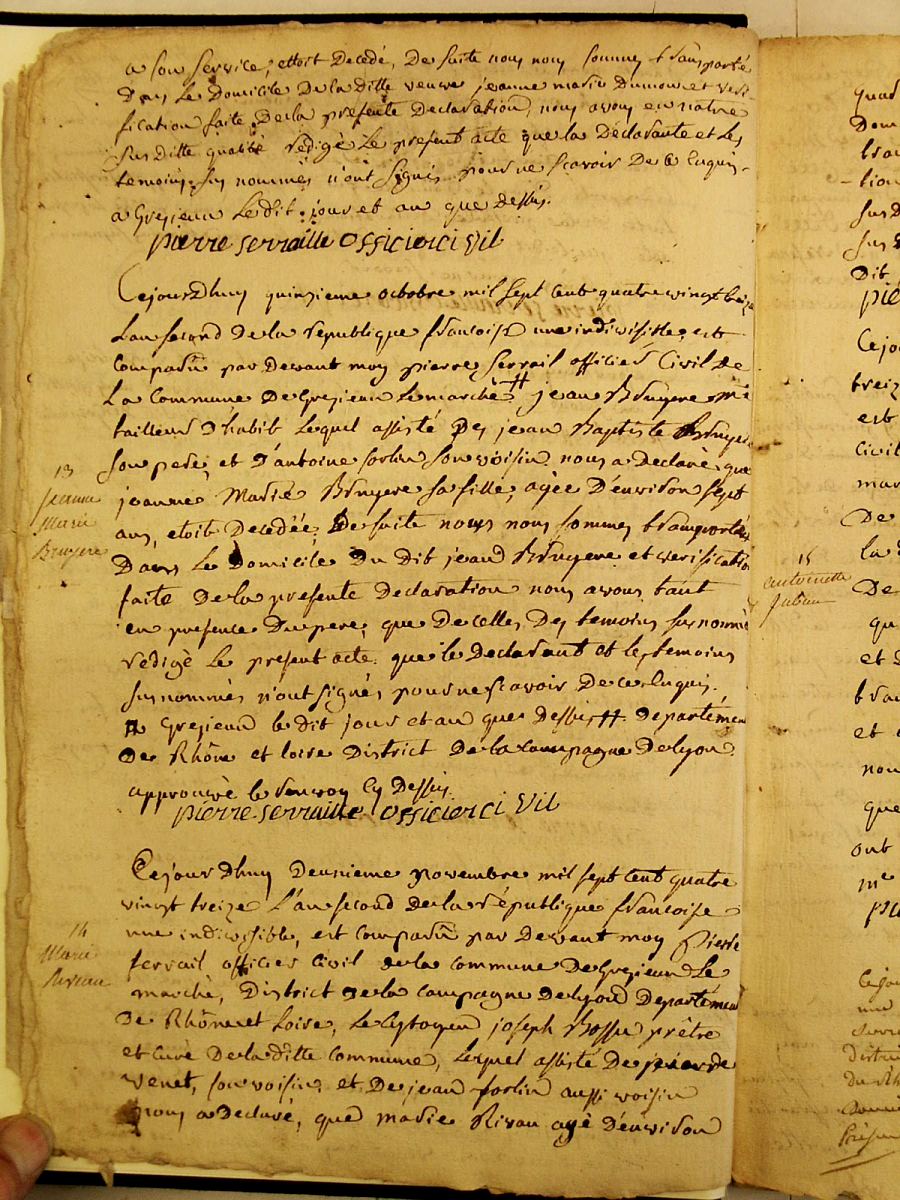 a son service, ettoit decedé, de suite nous nous sommes transporté
dans le domicile de la ditte veuve jeanne marie Dumon et veri-
fication faite de la presente declaration, nous avons en notre
susditte qualité redigé le present acte que la declarante et les
temoins sus nommés n'ont signés pour ne scavoir de ce enquis.
a Grezieux le dit jour et an que dessus.
pierre serraille officierci vil
Cejourdhuy quinzieme octobre mil sept cent quatre vingt treize
L'an second de la republique francoise une indivisible, est
comparu par devant moy pierre serrail officier civil de
La commune de Grezieux le marché # jean Bruyere me
tailleur d'habit lequel assisté des jean Baptiste Bruyere
son pere, et d'antoine sorlin son voisin nous a declaré que
jeanne Marie Bruyere sa fille, agée d'environ sept
ans, etoit decedée, de suite nous nous sommes transportés
dans le domicile du dit jean Bruyere et verification
faite de la presente declaration nous avons tant
en presence du pere, que de celles des temoins sus nommés
redigé le present acte que le declarant et les temoins
sus nommés n'ont signés pour ne scavoir de ce enquis.
a Grezieux le dit jour et an que dessus # departement
de Rhône et loire district de la campagne de lyon
approuvé le renvoy cy dessus.
pierre serraille officierci vil
13
jeanne
Marie
Bruyere
Cejourdhuy deuxieme novembre mil sept cent quatre
vingt treize L'an second de la république francoise
une indivisible, est comparu par devant moy Pierre
serrail officier civil de la commune de Grezieux le
marché, district de la campagne de lyon departement
de Rhône et Loire, le citoyen joseph Bossu prêtre
et curé de la ditte commune, lequel assisté de
venet, son voisin et de jean sorlin aussi voisin
nous a declaré, que marie Rivau agé d'environ
14
Marie
15
antoinette